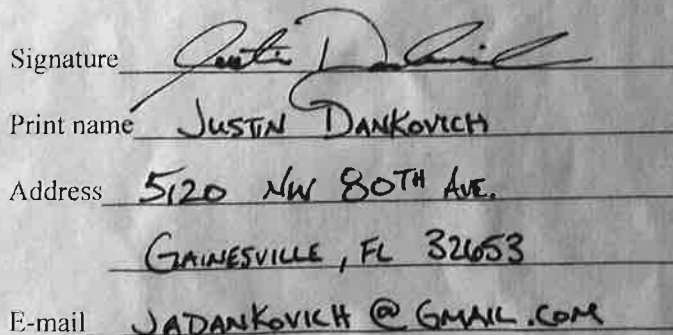 Signature Justin Dankovich
Print name JUSTIN DANKOVICH
Address 5120 NW 80TH AVE.
GAINESVILLE, FL 32653
E-mail JADANKOVICH @ GMAIL.COM